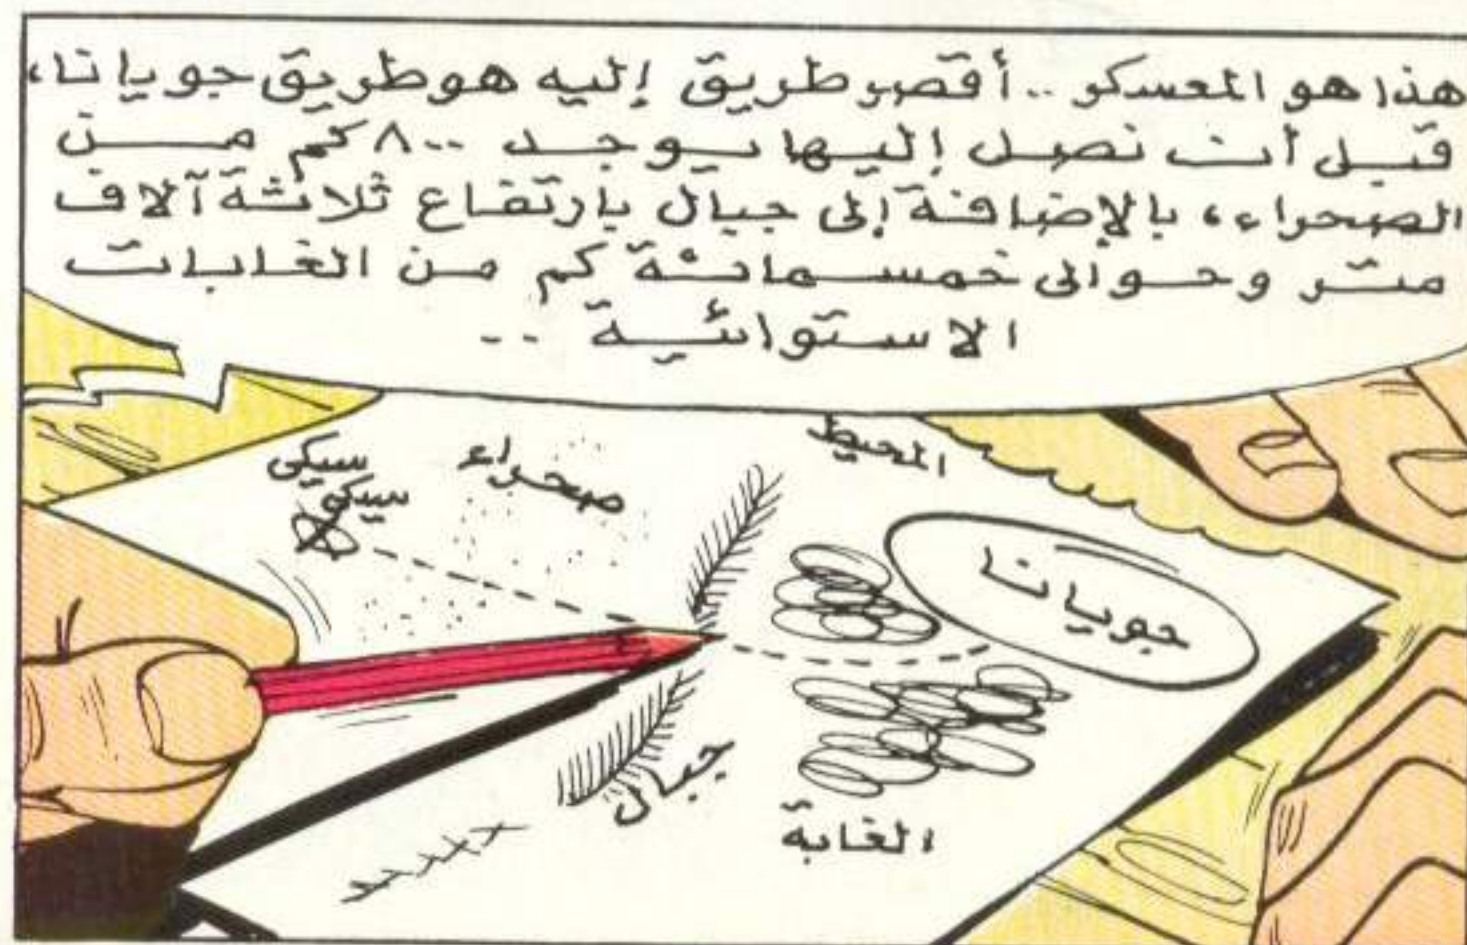 هذا هو المعسكر .. أقصر طريق إليه هو طريق جويانا،
قبل أن نصل إليها يوجد ٨٠٠ كم من
الصحراء، بالإضافة إلى جبال بارتفاع ثلاثة آلاف
متر وحوالى خمسمائة كم من الغابات
الاستوائية ..
المحيط
صحراء
سيكى
سيكى
جويانا
جبال
الغابة